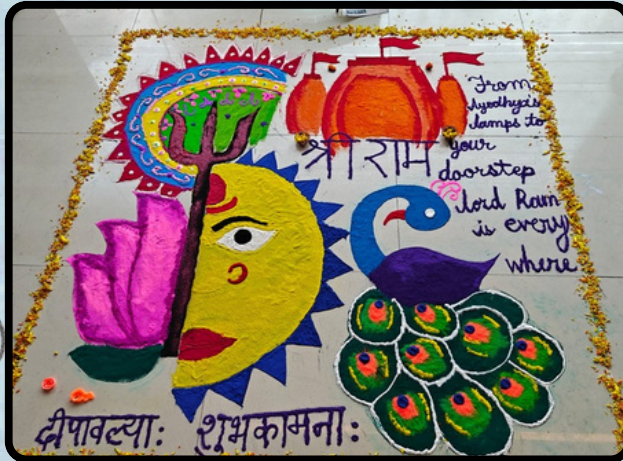 श्री राम
From
Ayodhya's
lamps to
your
doorstep
lord Ram
is every
where
दीपावल्या: शुभकामना: